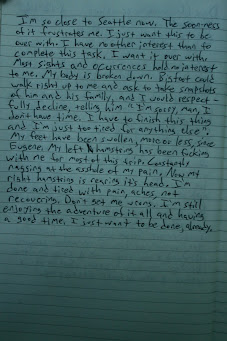 I'm so close to Seattle now. The soon-ness
of it frustrates me. I just want this to be
over with. I have no other interest than to
complete this task. I want it over with.
Most sights and occurrences hold no interest
to me. My body is broken down. Bigfoot could
walk right up to me and ask to take snapshots
of him and his family, and I would respect-
fully decline, telling him "I'm sorry, man, I
don't have time. I have to finish this thing
and I'm just too tired for anything else".
My feet have been swollen, more or less, since
Eugene. My left hamstring has been fucking
with me for most of this trip. Constantly
nagging at the asshole of my pain. Now my
right hamstring is rearing it's head. I'm
done and tired with pain, aches, not
recovering. Don't get me wrong. I'm still
enjoying the adventure of it all and having
a good time. I just want to be done, already.